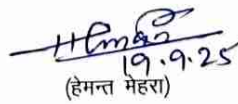 19.9.25
(हेमन्त मेहरा)